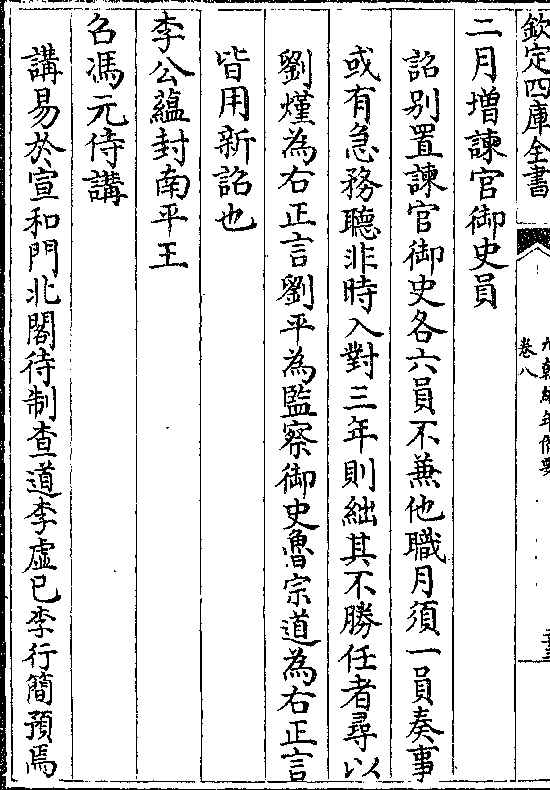 欽定四庫全書
卷八
二月增諫官御史員
詔别置諫官御史各六員不兼他職月須一員奏事
或有急務聽非時入對三年則絀其不勝任者尋以
劉爗為右正言劉平為監察御史魯宗道為右正言
皆用新詔也
李公蘊封南平王
召馮元侍講
講易於宣和門北閣待制查道李虛已李行簡預焉